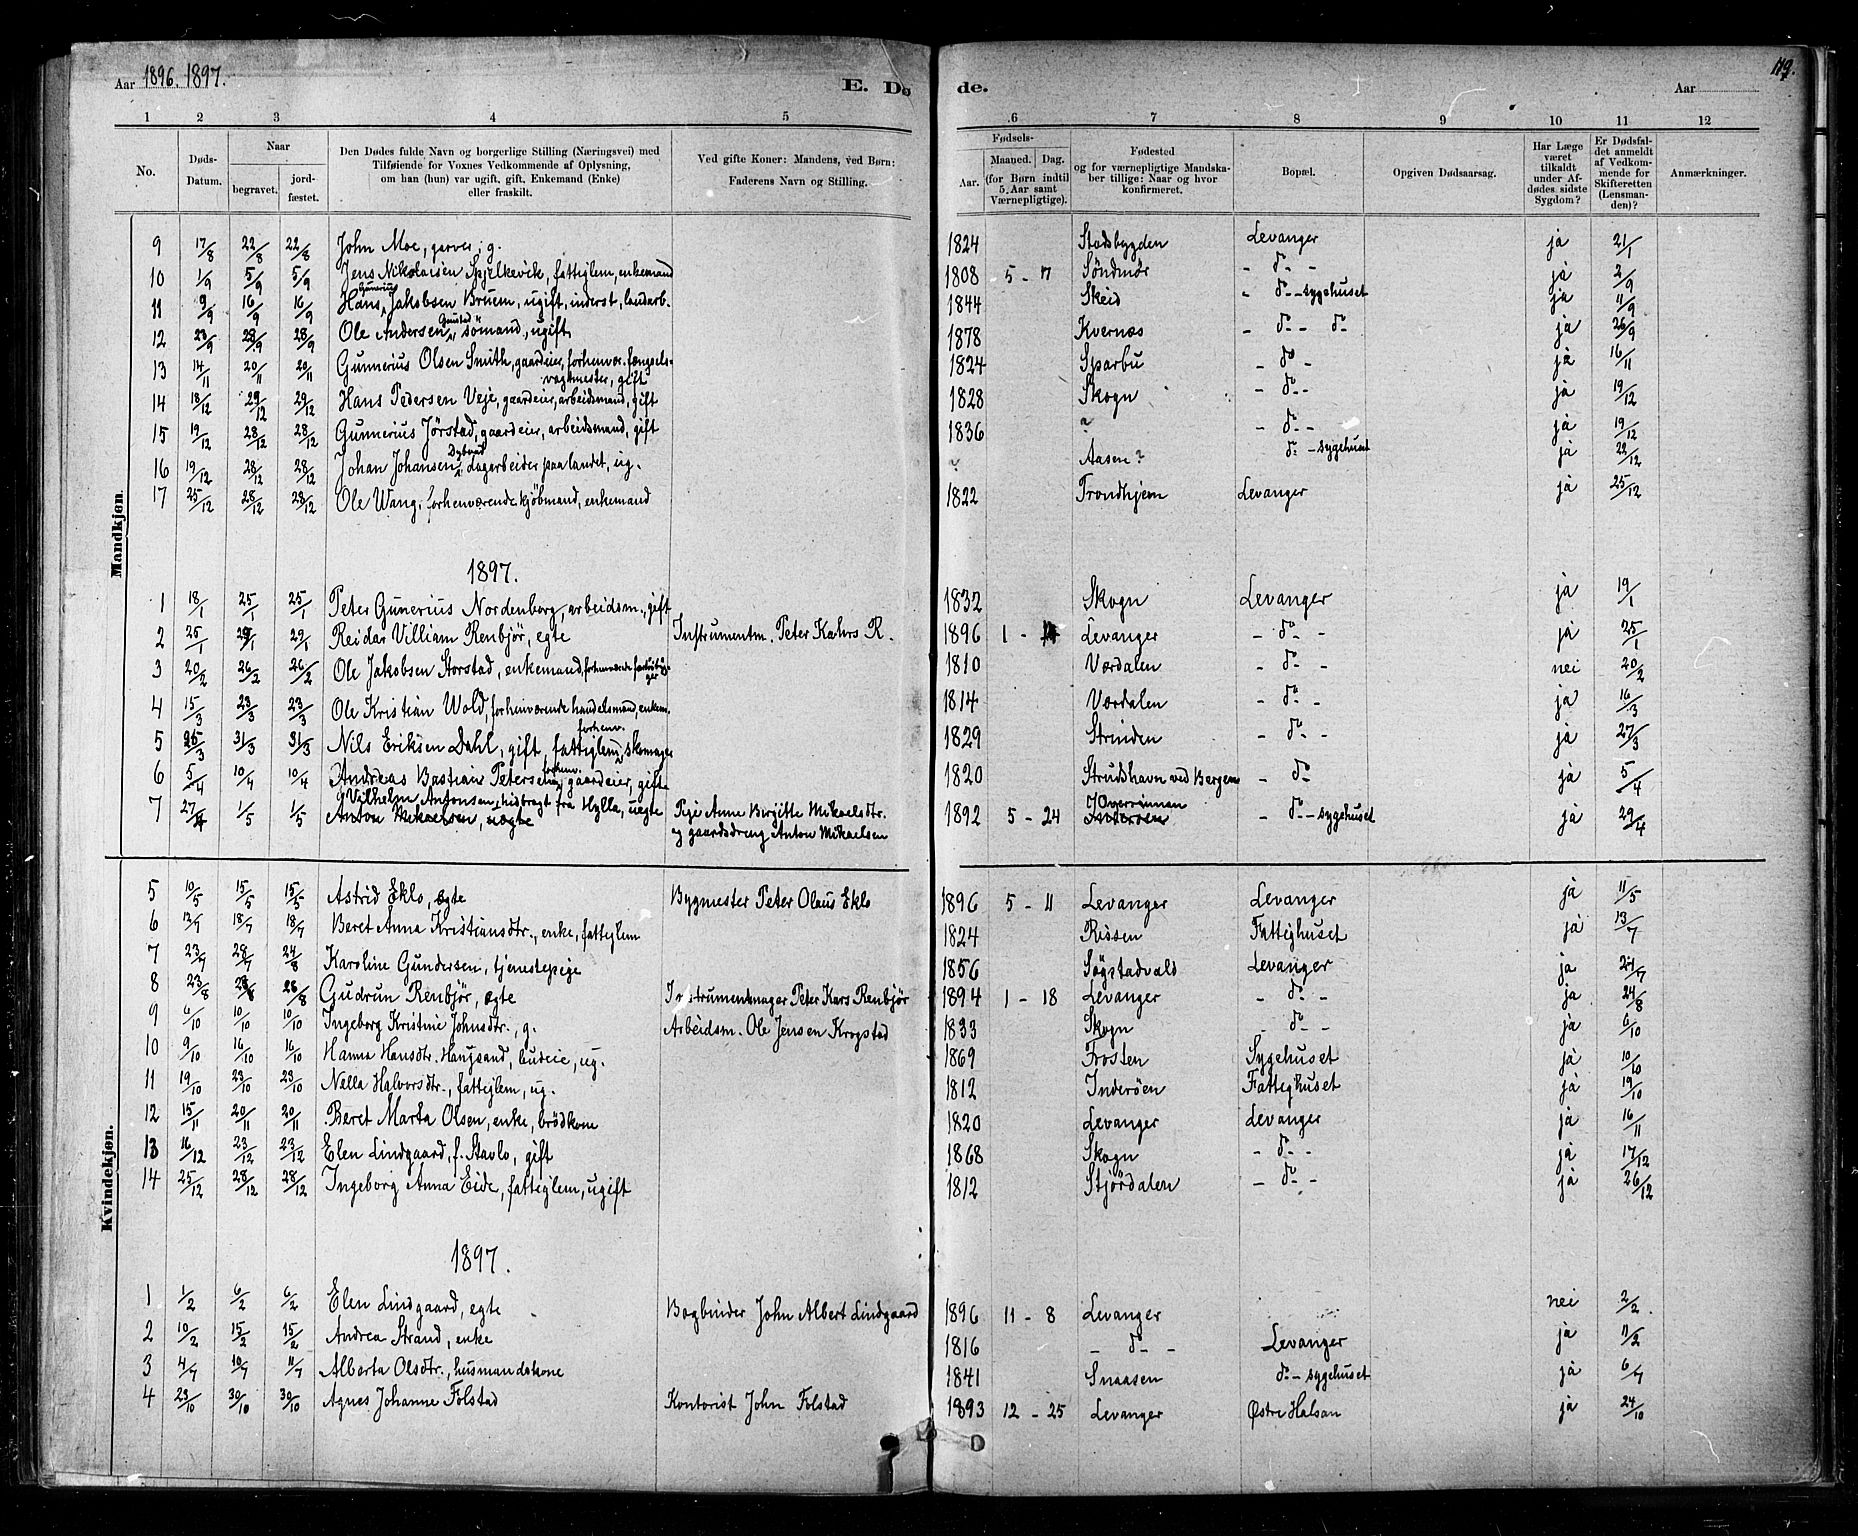 Aar 1896. 1897. E. Dø de. Aar 119.
1 2 3 3 4 5 6 7 8 9 10 11 12
No. Døds-Datum. Naar begravet. jord-fæstet. Den Dødes fulde Navn og borgerlige Stilling (Næringsvei) med Tilføiende for Voxnes Vedkommende af Oplysning, om han (hun) var ugift, gift, Enkemand (Enke) eller fraskilt. Ved gifte Koner: Mandens, ved Børn: Faderens Navn og Stilling. Fødsels- Aar. Maaned. Dag. (for Børn indtil 5 Aar samt Værnepligtige). Fødested og for værnepligtige Mandskaber tillige: Naar og hvor konfirmeret. Bopæl. Opgiven Dødsaarsag. Har Læge været tilkaldt under Afdødes sidste Sygdom? Er Dødsfaldet anmeldt af Vedkommende for Skifteretten (Lensmanden)? Anmærkninger.
Mandkjøn.
9 17/8 22/8 22/8 John Moe, garver, g. 1824 Stadsbygden Levanger ja 21/1
10 1/9 5/9 5/9 Jens Nikolaisen Spjelkevik, fattiglem, enkemand 1808 5 - 7 Søndmør - do - ja 2/9
11 9/9 16/9 16/9 Hans Gunerius Jakobsen Bruem, ugift, inderst, landarb. 1844 Skeid - do - sygehuset ja 11/9
12 23/9 28/9 28/9 Ole Andersen sømand, ugift 1878 Kvernæs - do - do ja 26/9
13 14/11 20/11 20/11 Gunnerius Olsen Smith, gaardeier, forhenvær. fængsels-
vagtmester, gift 1824 Sparbu - do - ja 16/11
14 18/12 29/12 29/12 Hans Pedersen Veje, gaardeier, arbeidsmand, gift 1828 Skogn - do - ja 19/12
15 19/12 28/12 28/12 Gunnerius Jørstad, gaardeier, arbeidsmand, gift 1836 ? - do - ja 19/12
16 19/12 28/12 28/12 Johan Johansen Dybvad Lagarbeider paa landet, ug. ? Aasen? do - sygehuset ja 22/12
17 25/12 28/12 28/12 Ole Wang, forhenværende kjøbmand, enkemand 1822 Trondhjem Levanger ja 25/12
1897.
1 18/1 25/1 25/1 Peter Gunerius Nordenborg, arbeidsm., gift 1832 Skogn Levanger ja 19/1
2 25/1 29/1 29/1 Reidar Villiam Renbjør, egte Instrumentm. Peter Kahrs R. 1896 1 - 14 Levanger - do - ja 25/1
3 20/2 26/2 26/2 Ole Jakobsen Storstad, enkemand, forhenværende 1810 Værdalen - do - nei 20/2
4 15/3 23/3 23/3 Ole Kristian Wold, forhenværende handelsmand, enkem. 1814 Værdalen - do - ja 16/3
5 26/3 31/3 31/3 Nils Eriksen Dahl, gift, fattiglem, forhenv. skomager 1829 Strinden - do - ja 27/3
6 5/4 10/4 10/4 Andreas Bastian Petersen, forhenv. gaardeier, gift 1820 Strudshavn ved Bergen - do - ja 5/4
7 27/4 1/5 1/5 Vilhelm Antonsen, hidbragt fra Hylla, uegte
Anton Mikaelsen, uegte Pige Anne Birgitte Mikaelsdtr. og gaardsdreng Anton Mikaelsen 1892 5 - 24 Inderøen - do - sygehuset ja 29/4
Kvindekjøn.
5 10/5 15/5 15/5 Astrid Eklo, egte Bygmester Peter Olaus Eklo 1896 5 - 11 Levanger Levanger ja 11/5
6 13/7 18/7 18/7 Beret Anna Kristiansdtr., enke, fattiglem 1824 Rissen Fattighuset ja 13/7
7 23/7 28/7 24/8 Karoline Gundersen, tjenestepige 1856 Søgstadvald Levanger ja 24/7
8 23/8 28/8 28/8 Gudrun Renbjør, egte Instrumentmager Peter Kars Renbjør 1894 1 - 18 Levanger - do - ja 24/8
9 6/10 10/10 10/10 Ingeborg Kristine Johnsdtr., g. Arbeidsm. Ole Jensen Krogstad 1833 Skogn - do - ja 6/10
10 9/10 16/10 16/10 Hanna Hansdtr. Haugsand, budeie, ug. 1869 Frosten Sygehuset ja 10/10
11 19/10 23/10 23/10 Nella Halvorsdtr., fattiglem, ug. 1812 Inderøen Fattighuset ja 19/10
12 15/11 20/11 20/11 Beret Marta Olsen, enke, brødkone 1820 Levanger Levanger ja 16/11
13 16/12 23/12 23/12 Elen Lindgaard, f. Stavlo, gift 1868 Skogn - do - ja 17/12
14 25/12 28/12 28/12 Ingeborg Anna Eide, fattiglem, ugift 1812 Stjørdalen - do - ja 26/12
1897.
1 1/2 6/2 6/2 Elen Lindgaard, egte Bogbinder John Albert Lindgaard 1896 11 - 8 Levanger nei 2/2
2 10/2 15/2 15/2 Andrea Strand, enke 1816 - do - Levanger ja 11/2
3 4/7 10/7 11/7 Alberta Olsdtr., husmandskone 1841 Snaasen do - sygehuset ja 6/7
4 23/10 30/10 30/10 Agnes Johanne Folstad Kontorist John Folstad 1893 12 - 25 Levanger Østre Halsan ja 24/10